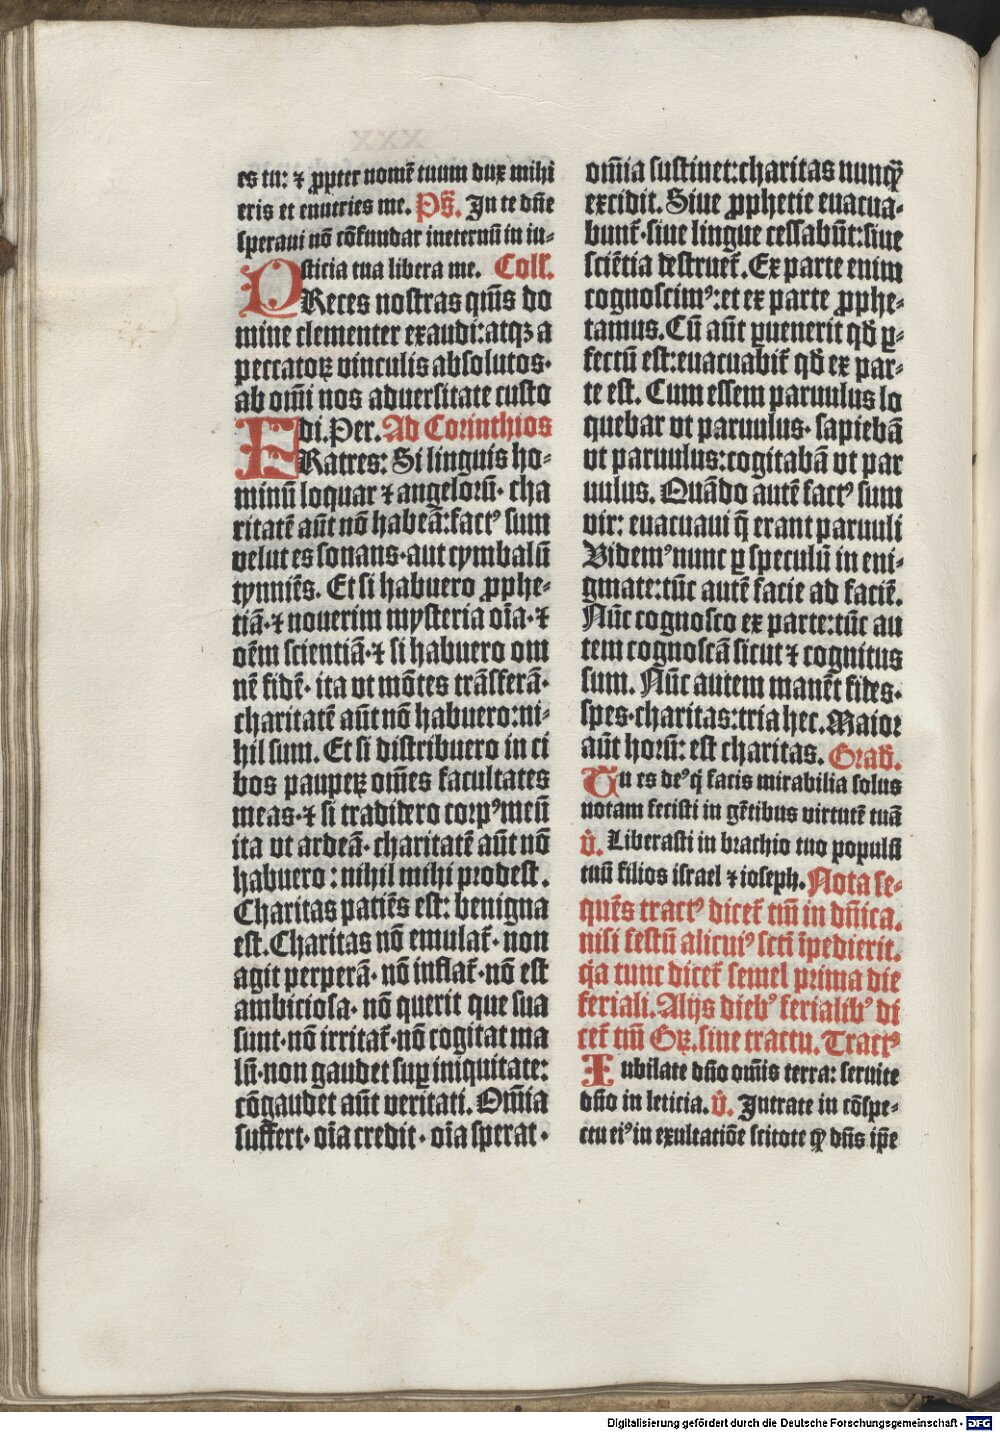 es tu: ⁊ ꝓpter nomē tuum dux mihi
eris et enutries me. Ps̄. In te dn̄e
speraui nō cōfundar ineternū in iu-
sticia tua libera me. Coll.
PReces nostras qm̄s do
mine clementer exaudi: atqꝫ a
peccatoꝝ vinculis absolutos·
ab om̄i nos aduersitate custo
di. Per. Ad Corinthios
FRatres: Si linguis ho-
minū loquar ⁊ angeloꝛū· cha
ritatē aūt nō habeā: factꝰ sum
velut es sonans· aut cymbalū
tynniēs. Et si habuero ꝓphe-
tiā· ⁊ nouerim mysteria oīa· ⁊
oēm scientiā· ⁊ si habuero om
nē fidē· ita vt mōtes trāsferā·
charitatē aūt nō habuero: ni-
hil sum. Et si distribuero in ci
bos pauperꝝ om̄es facultates
meas· ⁊ si tradidero corpꝰ meū
ita vt ardeā· charitatē aūt nō
habuero: nihil mihi prodest.
Charitas patiēs est: benigna
est. Charitas nō emulat̄· non
agit perperā· nō inflat̄· nō est
ambiciosa· nō querit que sua
sunt· nō irritat̄· nō cogitat ma
lū· non gaudet suꝑ iniquitate:
cōgaudet aūt veritati. Om̄ia
suffert· oīa credit· oīa sperat·
om̄ia sustinet: charitas nunqꝫ̄
excidit. Siue ꝓphetie euacua-
bunt̄· siue lingue cessabūt: siue
sciētia destruet̄. Ex parte enim
cognoscimꝰ: et ex parte ꝓphe-
tamus. Cū aūt ꝑuenerit qđ ꝑ-
fectū est: euacuabit̄ qđ ex par-
te est. Cum essem paruulus lo
quebar vt paruulus· sapiebā
vt paruulus: cogitabā vt par
uulus. Quādo autē factꝰ sum
vir: euacuaui q̄ erant paruuli
Videmꝰ nunc ꝑ speculū in eni-
gmate: tūc autē facie ad faciē.
Nūc cognosco ex parte: tūc au
tem cognoscā sicut ⁊ cognitus
sum. Nūc autem manēt fides·
spes· charitas: tria hec. Maior
aūt horū: est charitas. Građ.
Tu es deꝰ q̄ facis mirabilia solus
notam fecisti in gētibus virtutē tuā
v̄. Liberasti in brachio tuo populū
tuū filios israel ⁊ ioseph. Nota se-
quēs tractꝰ dicet̄ tm̄ in dn̄ica.
nisi festū alicuiꝰ scti īpedierit.
q̇a tunc dicet̄ semel prima die
feriali. Alijs diebꝰ ferialibꝰ di
cet̄ tm̄ Gꝝ. sine tractu. Tractꝰ
Iubilate dn̄o om̄is terra: seruite
dn̄o in leticia. v̄. Intrate in cōspe-
ctu eiꝰ in exultatiōe scitote ꝙ dn̄s ip̄e
Digitalisierung gefördert durch die Deutsche Forschungsgemeinschaft - DFG